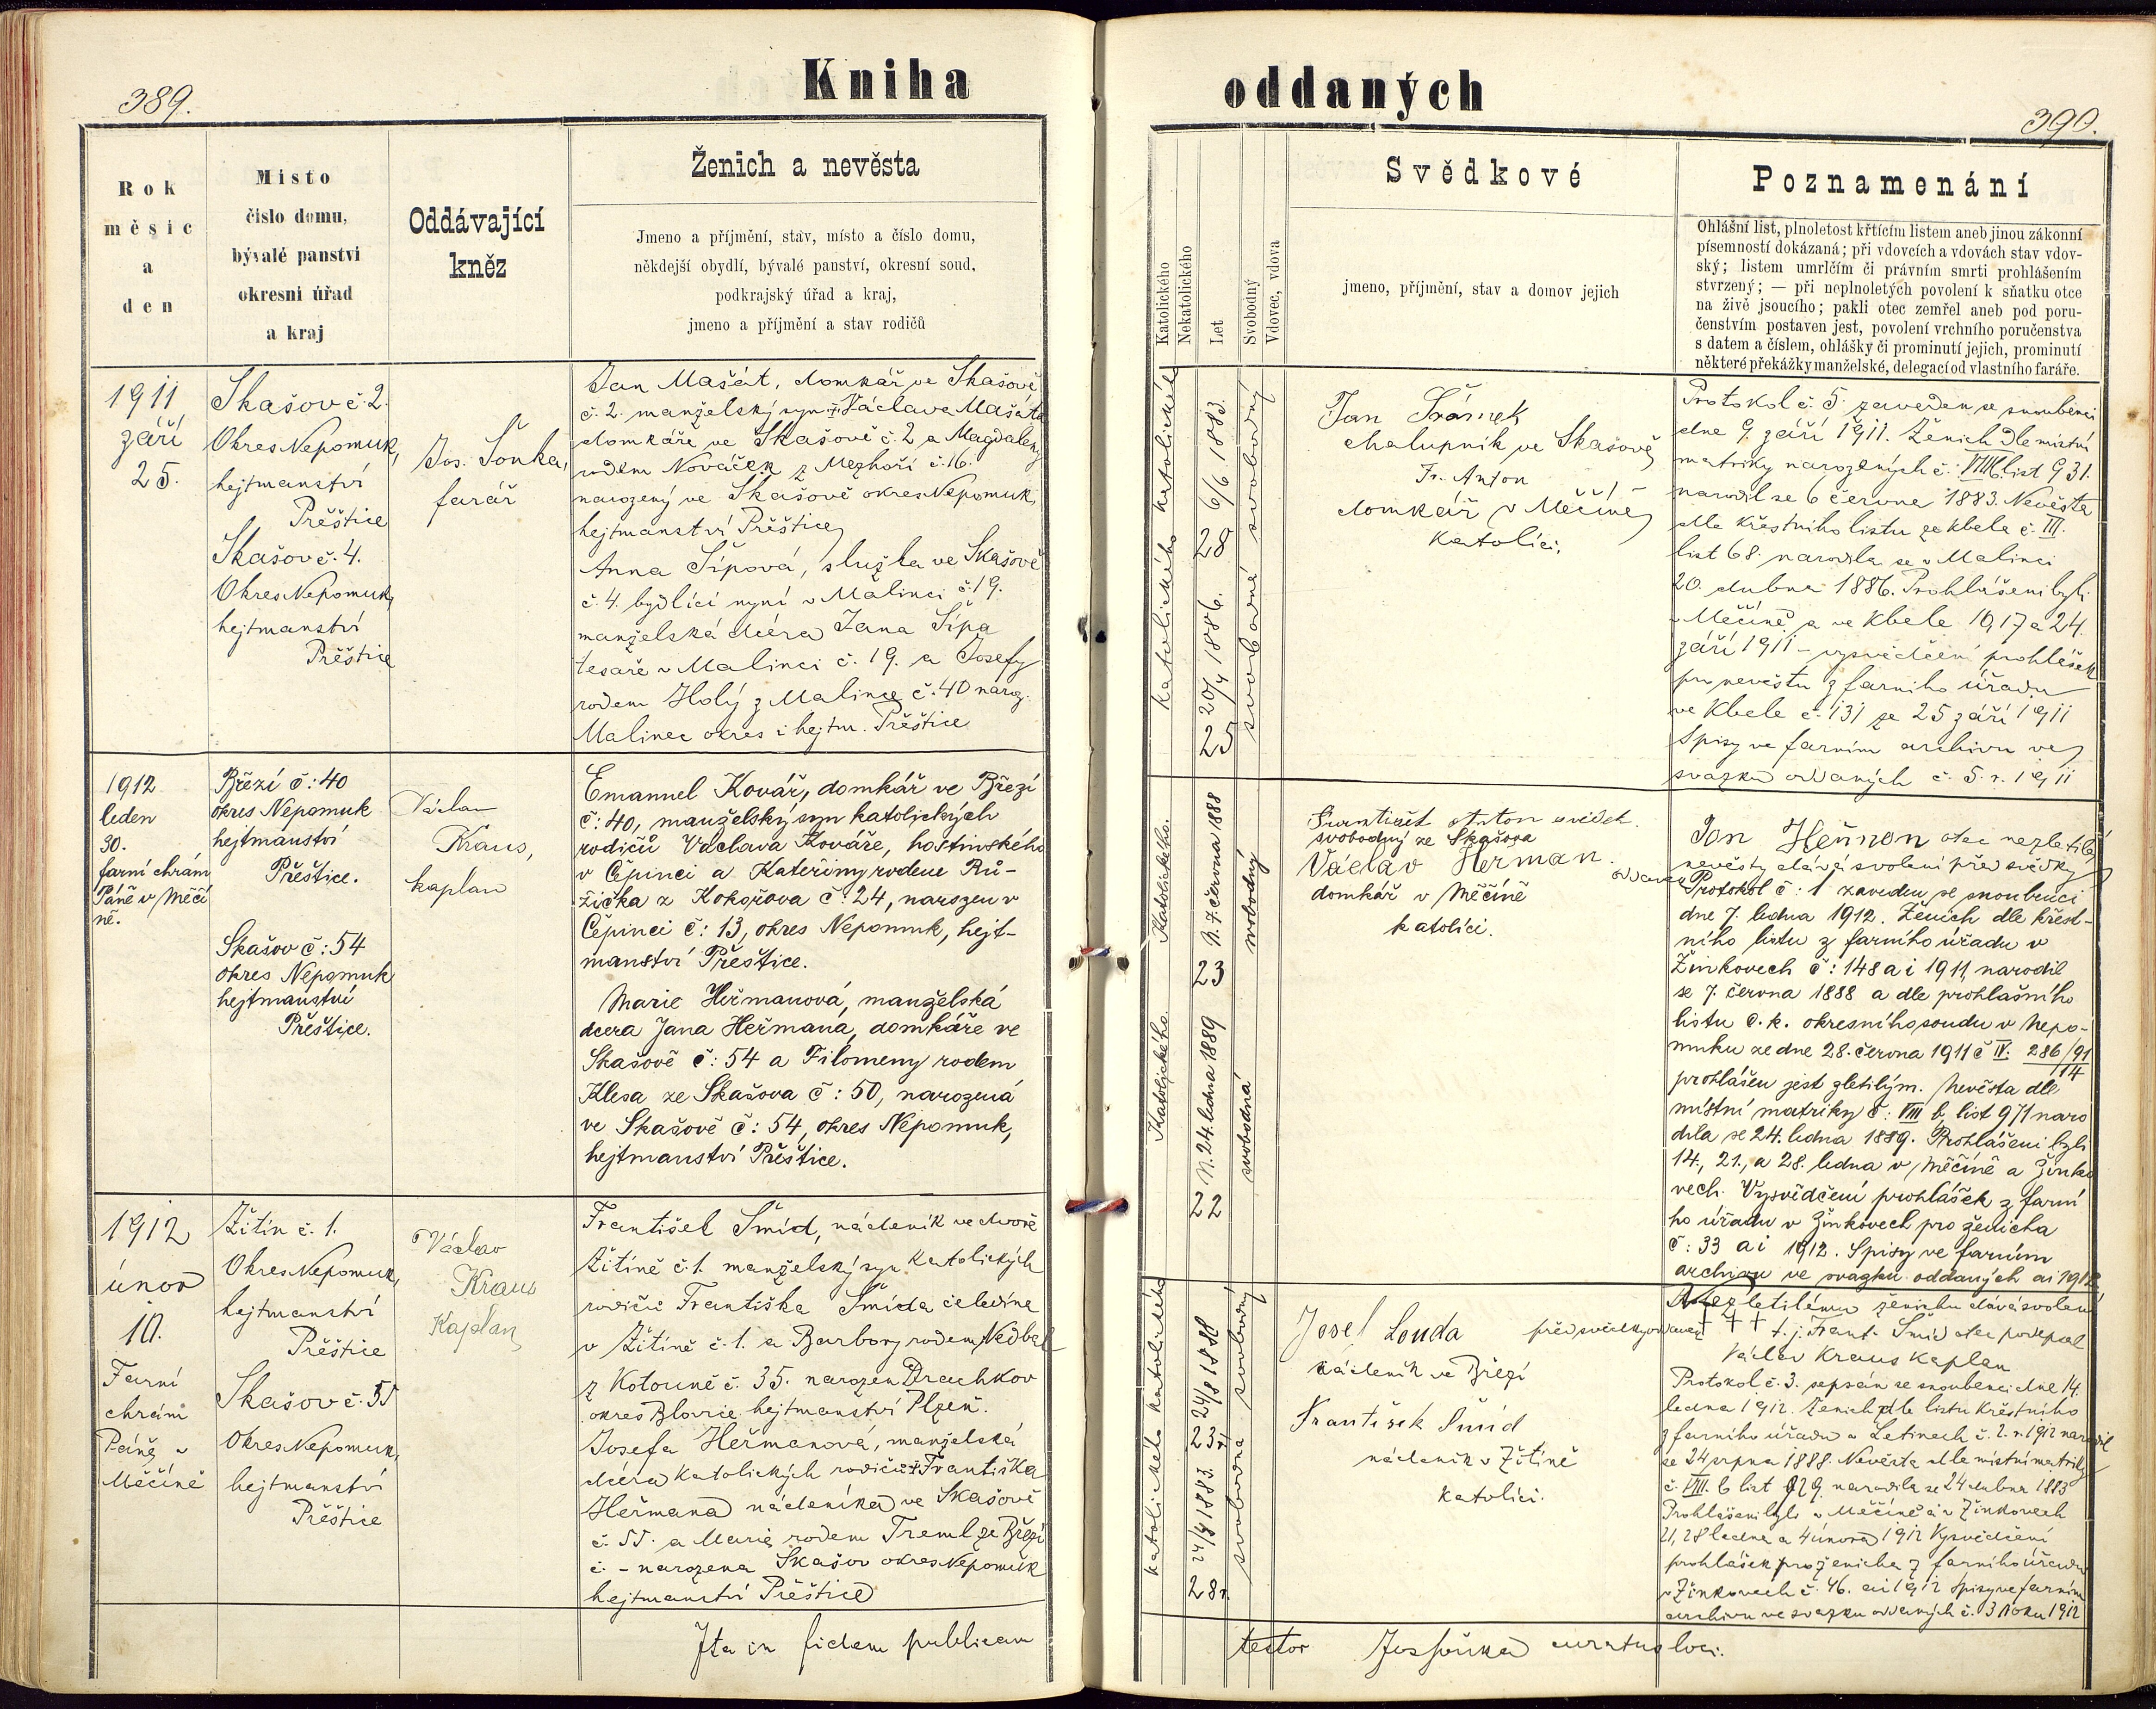 389.
Kniha
Rok
měsíc
a
den
Místo
číslo domu,
bývalé panství
okresní úřad
a kraj
Oddávající
kněz
Ženich a nevěsta
Jmeno a příjmění, stav, místo a číslo domu,
někdejší obydlí, bývalé panství, okresní soud,
podkrajský úřad a kraj,
jmeno a příjmění a stav rodičů
1911
září
25.
Skašov č 2.
Okres Nepomuk,
hejtmanství
Přěštice
Skašov č. 4.
Okres Nepomuk,
hejtmanství
Přěštice
Jos. Šonka,
farář
Jan Mašát, domkář ve Skašově
č. 2. manželský syn † Václava Mašáta
domkáře ve Skašově č. 2 a Magdaleny
rodem Nováček z Mezhoří č. 16.
narozený ve Skašově okres Nepomuk,
hejtmanství Přěštice
Anna Šípová, služka ve Skašově
č. 4. bydlící nyní v Malinci č. 19.
manželská dcéra Jana Šípa
tesaře v Malinci č. 19. a Josefy
rodem Holý z Malince č. 40 naroz.
Malinec okres i hejtm. Přěštice
1912
leden
30.
farní chrám
Páně v Měčí
ně.
Březí č: 40
okres Nepomuk
hejtmanství
Přěštice.
Skašov č: 54
okres Nepomuk
hejtmanství
Přěštice.
Václav
Kraus,
kaplan
Emanuel Kovář, domkář ve Březí
č: 40, manželský syn katolických
rodičů Václava Kováře, hostinského
v Čepinci a Kateřiny rodem Rů-
žička z Kokořova č: 24, narozen v
Čepinci č: 13, okres Nepomuk, hejt-
manství Přeštice.
Marie Heřmanová, manželská
dcera Jana Heřmana, domkáře ve
Skašově č: 54 a Filomeny rodem
Klesa ze Skašova č: 50, narozená
ve Skašově č: 54, okres Nepomuk,
hejtmanství Přěštice.
1912
únor
10.
Farní
chrám
Páně v
Měčíně
Žitín č. 1.
Okres Nepomuk,
hejtmanství
Přěštice
Skašov č. 55
Okres Nepomuk,
hejtmanství
Přěštice
Václav
Kraus
Kaplan
František Šmíd, nádeník ve dvoře
Žitíně č. 1. manželský syn katolických
rodičů Františka Šmída čeledína
v Žitíně č. 1. a Barbory rodem Nedbal
z Kotouně č. 35. narozen Drachkov
okres Blovice hejtmanství Plzeň.
Josefa Heřmanová, manželská
dcéra katolických rodičů † Františka
Heřmana nádeníka ve Skašově
č. 55. a Marie rodem Treml ze Březí
č. - narozena Skašov okres Nepomuk
hejtmanství Přěštice
Ita in fidem publicam
oddaných
390.
Katolického
Nekatolického
Let
Svobodný
Vdovec, vdova
Svědkové
jmeno, příjmění, stav a domov jejich
Poznamenání
Ohlášní list, plnoletost křtícím listem aneb jinou zákonní
písemností dokázaná; při vdovcích a vdovách stav vdov-
ský; listem umrlčím či právním smrti prohlášením
stvrzený; — při neplnoletých povolení k sňatku otce
na živě jsoucího; pakli otec zemřel aneb pod poru-
čenstvím postaven jest, povolení vrchního poručenstva
s datem a číslem, ohlášky či prominutí jejich, prominutí
některé překážky manželské, delegací od vlastního faráře.
katolického katolického
28 6/6 1883.
25 20/4 1886.
svobodný
svobodná
chalupník ve Skašově
Fr. Anton
domkář v Měčíně
Katolíci.
Protokol č. 5. zaveden se snoubenci
dne 9 září 1911. Ženich dle místní
matriky narozených č. VIII list 931.
narodil se 6 června 1883. Nevěsta
dle křestního listu ze Kbela č. III.
list 68. narodla se v Malinci
20. dubna 1886. Prohlášeni byli
v Měčíně a ve Kbele 10 17 a 24.
září 1911 - vysvědčení prohlášek
pro nevěstu z farního úřadu
ve Kbele č. 131 ze 25 září 1911
Spisy ve farním archivu ve
svazku oddaných č. 5. r. 1911
Katolického.
Katolického
23 N. 7. června 1888
22 N. 24. ledna 1889
svobodný
svobodná
Anton svědek.
svobodný ze Skašova
Václav Heřman.
domkář v Měčíně
katolíci.
Jan Heřman otec nezletilé
nevěsty dává svolení před svědky
Protokol č: 1 zaveden se snoubenci
dne 7. ledna 1912. Ženich dle křest-
ního listu z farního úřadu v
Žinkovech č: 148 a i 1911 narodil
se 7. června 1888 a dle prohlašního
listu c. k. okresního soudu v Nepo-
muku ze dne 28. června 1911 č IV. 286/91
14
prohlášen jest zletilým. Nevěsta dle
místní matriky č: VIII b, list 971 naro
dila se 24. ledna 1889. Prohlášeni byli
14., 21., a 28. ledna v Měčíně a Žinko
vech. Vysvědčení prohlášek z farní
ho úřadu v Žinkovech pro ženicha
č: 33 ai 1912. Spisy ve farním
archivu ve svazku oddaných ai 1912
katolického katolického
23 r. 24/8 1888
28 r. 24/4 1883.
svobodný
svobodná
Josef Louda
nádeník ve Březí
František Šmíd
nádeník v Žitíně
katolíci.
před svědky oddavek
Nezletilému ženichu dává svolení
† † † t. j. Frant. Šmíd otec podepsal
Václav Kraus Kaplan
Protokol č. 3. sepsán se snoubenci dne 14.
ledna 1912. Ženich dle listu křestního
z farního úřadu v Letinech č. 2. r. 1912 narodil
se 24 srpna 1888. Nevěsta dle místní matriky
č. VIII. b list 829. narodila se 24 dubna 1883
Prohlášeni byli v Měčíně a v Žinkovech
21, 28 ledna a 4 února 1912 Vysvědčení
prohlášek pro ženicha z farního úřadu
v Žinkovech č. 46. ai 1912 Spisy ve farním
archivu ve svazku oddaných č. 3 roku 1912
testor Jos Šonka curatus loci.